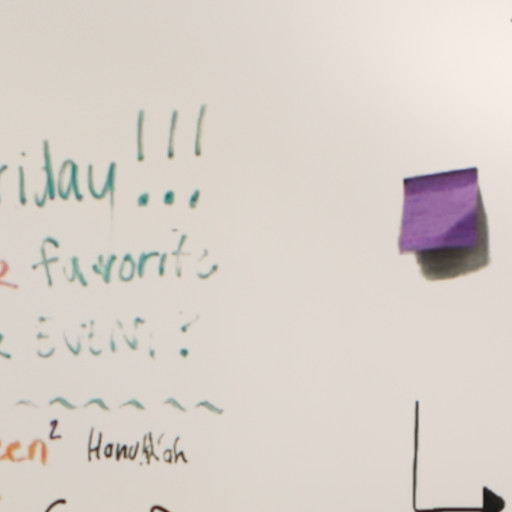 riday!!!
favorite
EVENT?
een² Hanukkah